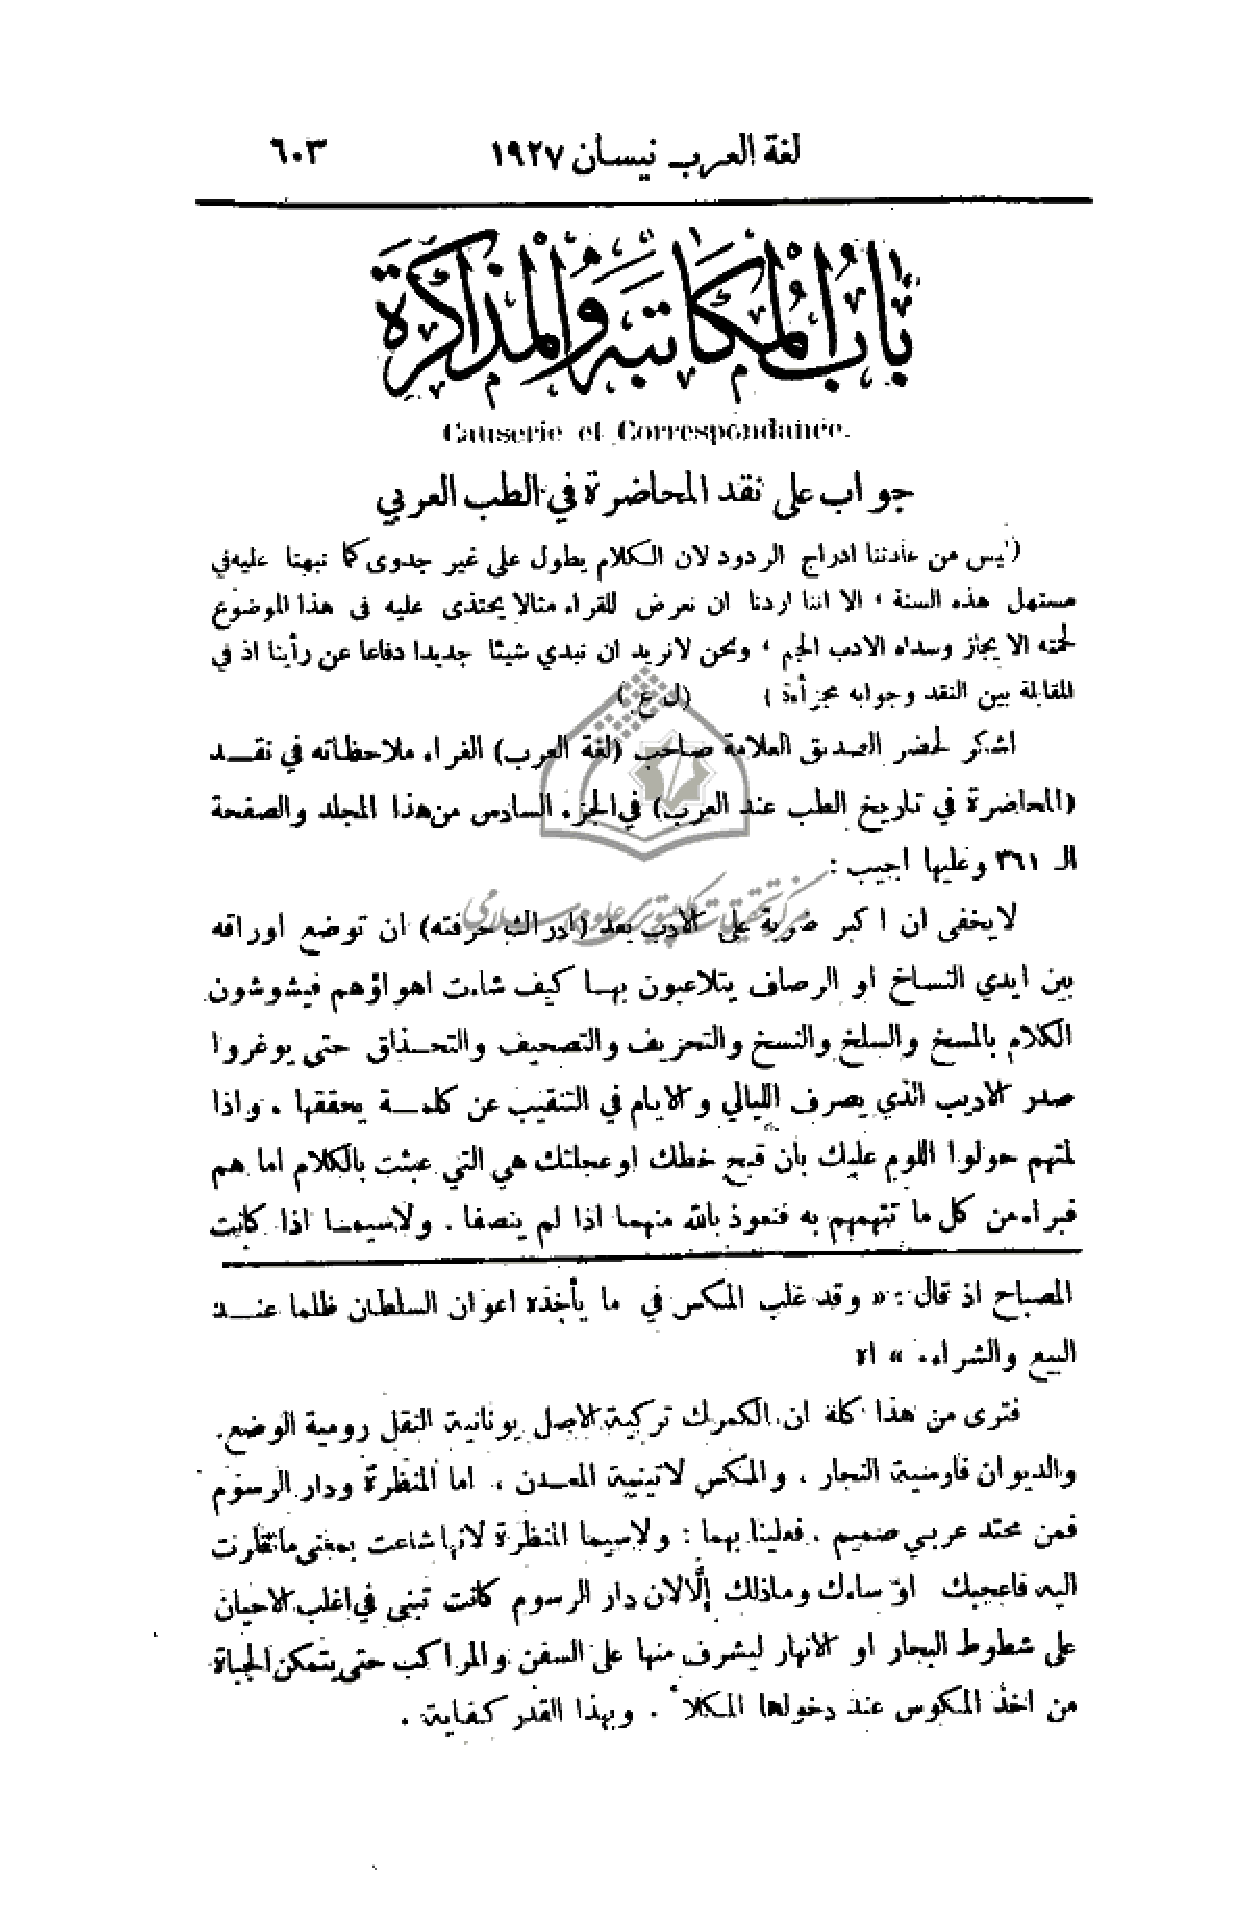 لغة العرب نيسان ١٩٢٧ ٦٠٣
باب المكاتبة والمذاكرة
Causerie et Correspondance.
جواب على نقد المحاضرة في الطب العربي
(ليس من عادتنا ادراج الردود لان الكلام يطول على غير جدوى كما نبهنا عليه في
مستهل هذه السنة ، الا اننا اردنا ان نعرض للقراء مثالا يحتذى عليه في هذا الموضوع
لحمته الايجاز وسداه الادب الجم ، ونحن لا نريد ان نبدي شيئا جديدا دفاعا عن رأينا اذ في
المقابلة بين النقد وجوابه مجزأة ) (ل ع.)
اشكر لحضر الصديق العلامة صاحب (لغة العرب) الغراء ملاحظاته في نقــد
(المحاضرة في تاريخ الطب عند العرب) في الجزء السادس من هذا المجلد والصفحة
الـ ٣٦١ وعليها اجيب :
لا يخفى ان اكبر ضربة على الادب بعد (ادراك حرفته) ان توضع اوراقه
بين ايدي النساخ او الرصاف يتلاعبون بهــا كيف شاءت اهواؤهم فيشوشون
الكلام بالمسخ والسلخ والنسخ والتحريف والتصحيف والتحــذلق حتى يوغروا
صدر الاديب الذي يصرف الليالي والايام في التنقيب عن كلمــة يحققها . واذا
لمتهم حولوا اللوم عليك بأن قبح خطك او عجلتك هي التي عبثت بالكلام اما هم
فبراء من كل ما تتهمهم به فنعوذ بالله منهما اذا لم ينصفا . ولاسيمــا اذا كانت
المصباح اذ قال : « وقد غلب المكس في ما يأخذه اعوان السلطان ظلما عنــد
البيع والشراء. » اه
فترى من هذا كله ان الكمرك تركية الاصل يونانية النقل رومية الوضع.
والديوان فارسية النجار ، والمكس لاتينية المعــدن ، اما المنظرة ودار الرسوم
فمن محتد عربي صميم . فعلينا بهما : ولاسيما المنظرة لانها شاعت بمعنى ما نظرت
اليه فاعجبك او ساءك وما ذلك إلّا لان دار الرسوم كانت تبنى في اغلب الاحيان
على شطوط البحار او الانهار ليشرف منها على السفن والمراكب حتى يتمكن الجباة
من اخذ المكوس عند دخولها المكلأ . وبهذا القدر كفاية .
مركز تحقيقات كامپيوتري علوم اسلامي